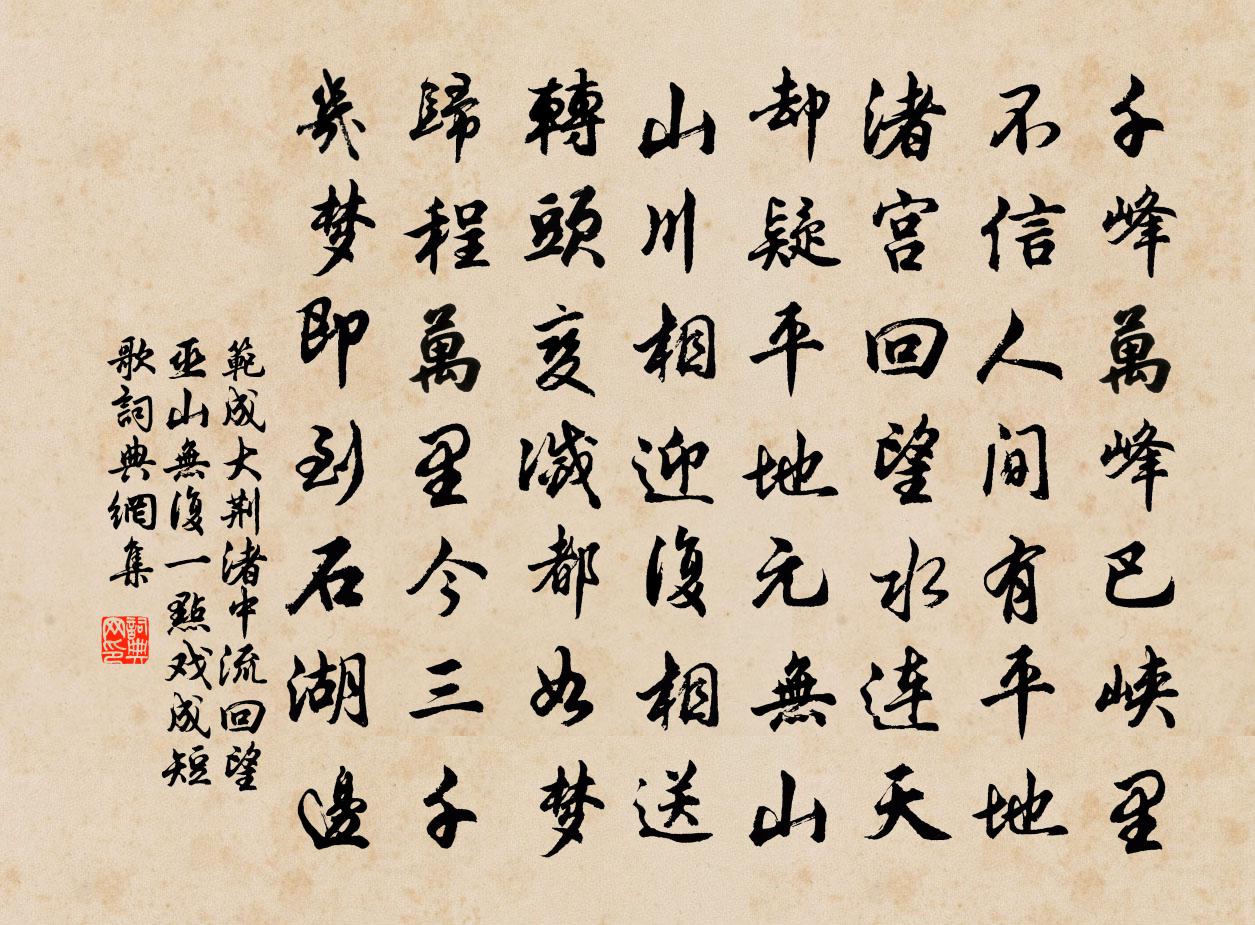 千峰萬峰巴峽里
不信人間有平地
渚宮回望水連天
却疑平地元無山
山川相迎復相送
轉頭變滅都如梦
歸程萬里今三千
幾梦即到石湖邊
範成大荆渚中流回望
巫山無復一點戏成短
歌詞典網集
詞典
网印